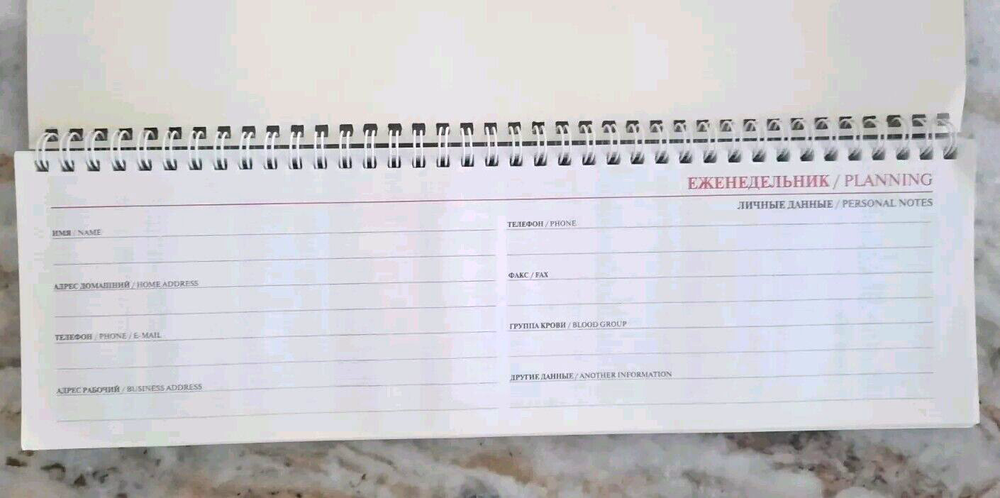 ЕЖЕНЕДЕЛЬНИК / PLANNING
ЛИЧНЫЕ ДАННЫЕ / PERSONAL NOTES
ИМЯ / NAME
АДРЕС ДОМАШНИЙ / HOME ADDRESS
ТЕЛЕФОН / PHONE / E-MAIL
АДРЕС РАБОЧИЙ / BUSINESS ADDRESS
ТЕЛЕФОН / PHONE
ФАКС / FAX
ГРУППА КРОВИ / BLOOD GROUP
ДРУГИЕ ДАННЫЕ / ANOTHER INFORMATION